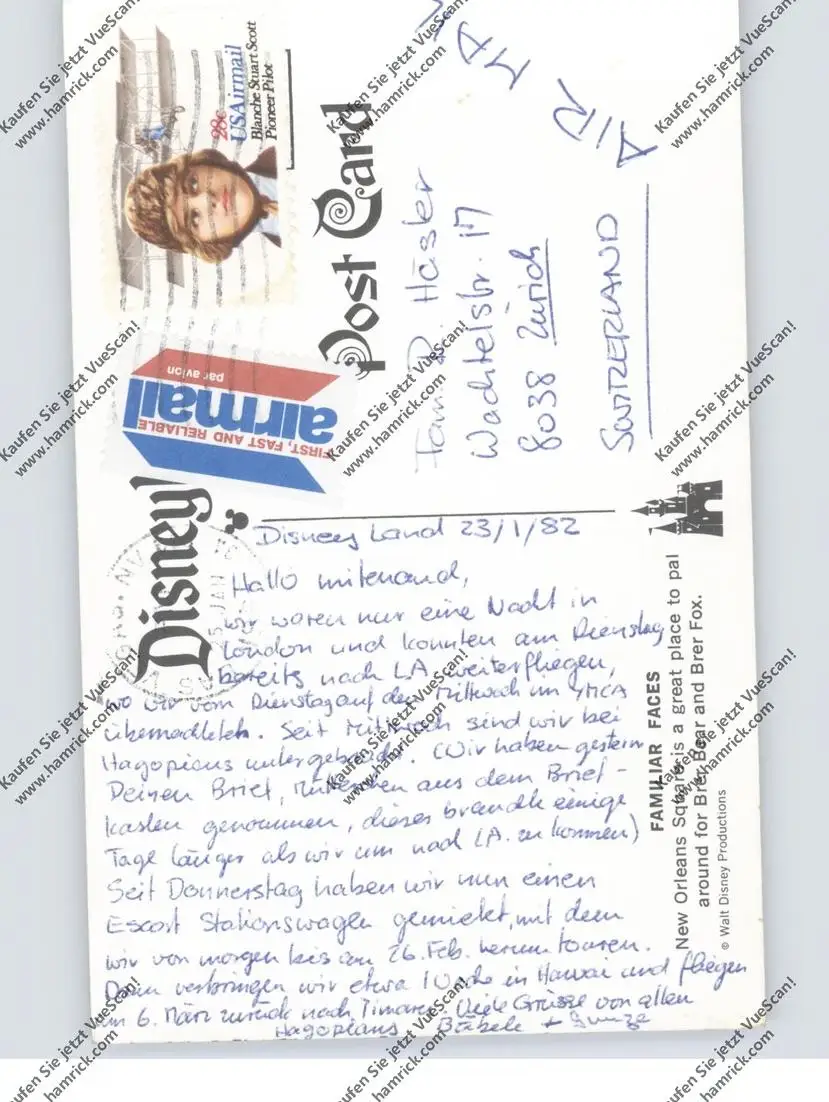 Disney
Post Card
28c
USAirmail
Blanche Stuart Scott
Pioneer Pilot
par avion
airmail
FIRST, FAST AND RELIABLE
AIR MAIL
Fam. R. Häsler
Wachtelstr. 17
8038 Zürich
SWITZERLAND
Disney Land 23/1/82
Hallo mitenand,
wir waren nur eine Nacht in
London und konnten am Dienstag
bereits nach LA weiterfliegen,
wo wir vom Dienstag auf den Mittwoch im YMCA
übernachteten. Seit Mittwoch sind wir bei
Hagopians untergebracht. (Wir haben gestern
Deinen Brief, aus dem Brief-
kasten genommen, dieser brauchte einige
Tage länger als wir um nach LA. zu kommen)
Seit Donnerstag haben wir nun einen
Escort Stationswagen gemietet, mit dem
wir von morgen bis am 26. Feb. herum touren.
Dann verbringen wir etwa 1 Woche in Hawai und fliegen
am 6. März zurück nach Timaru. Viele Grüsse von allen
Hagopians Bäbele +
FAMILIAR FACES
New Orleans Square is a great place to pal
around for Brer Bear and Brer Fox.
© Walt Disney Productions
Kaufen Sie jetzt VueScan!
www.hamrick.com